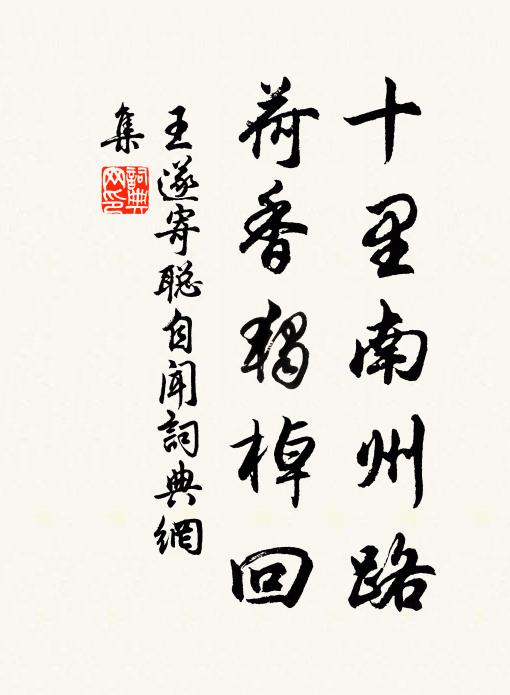 十里南州路
荷香獨棹回
王遂寄聪自闻詞典網
集
詞典
网印